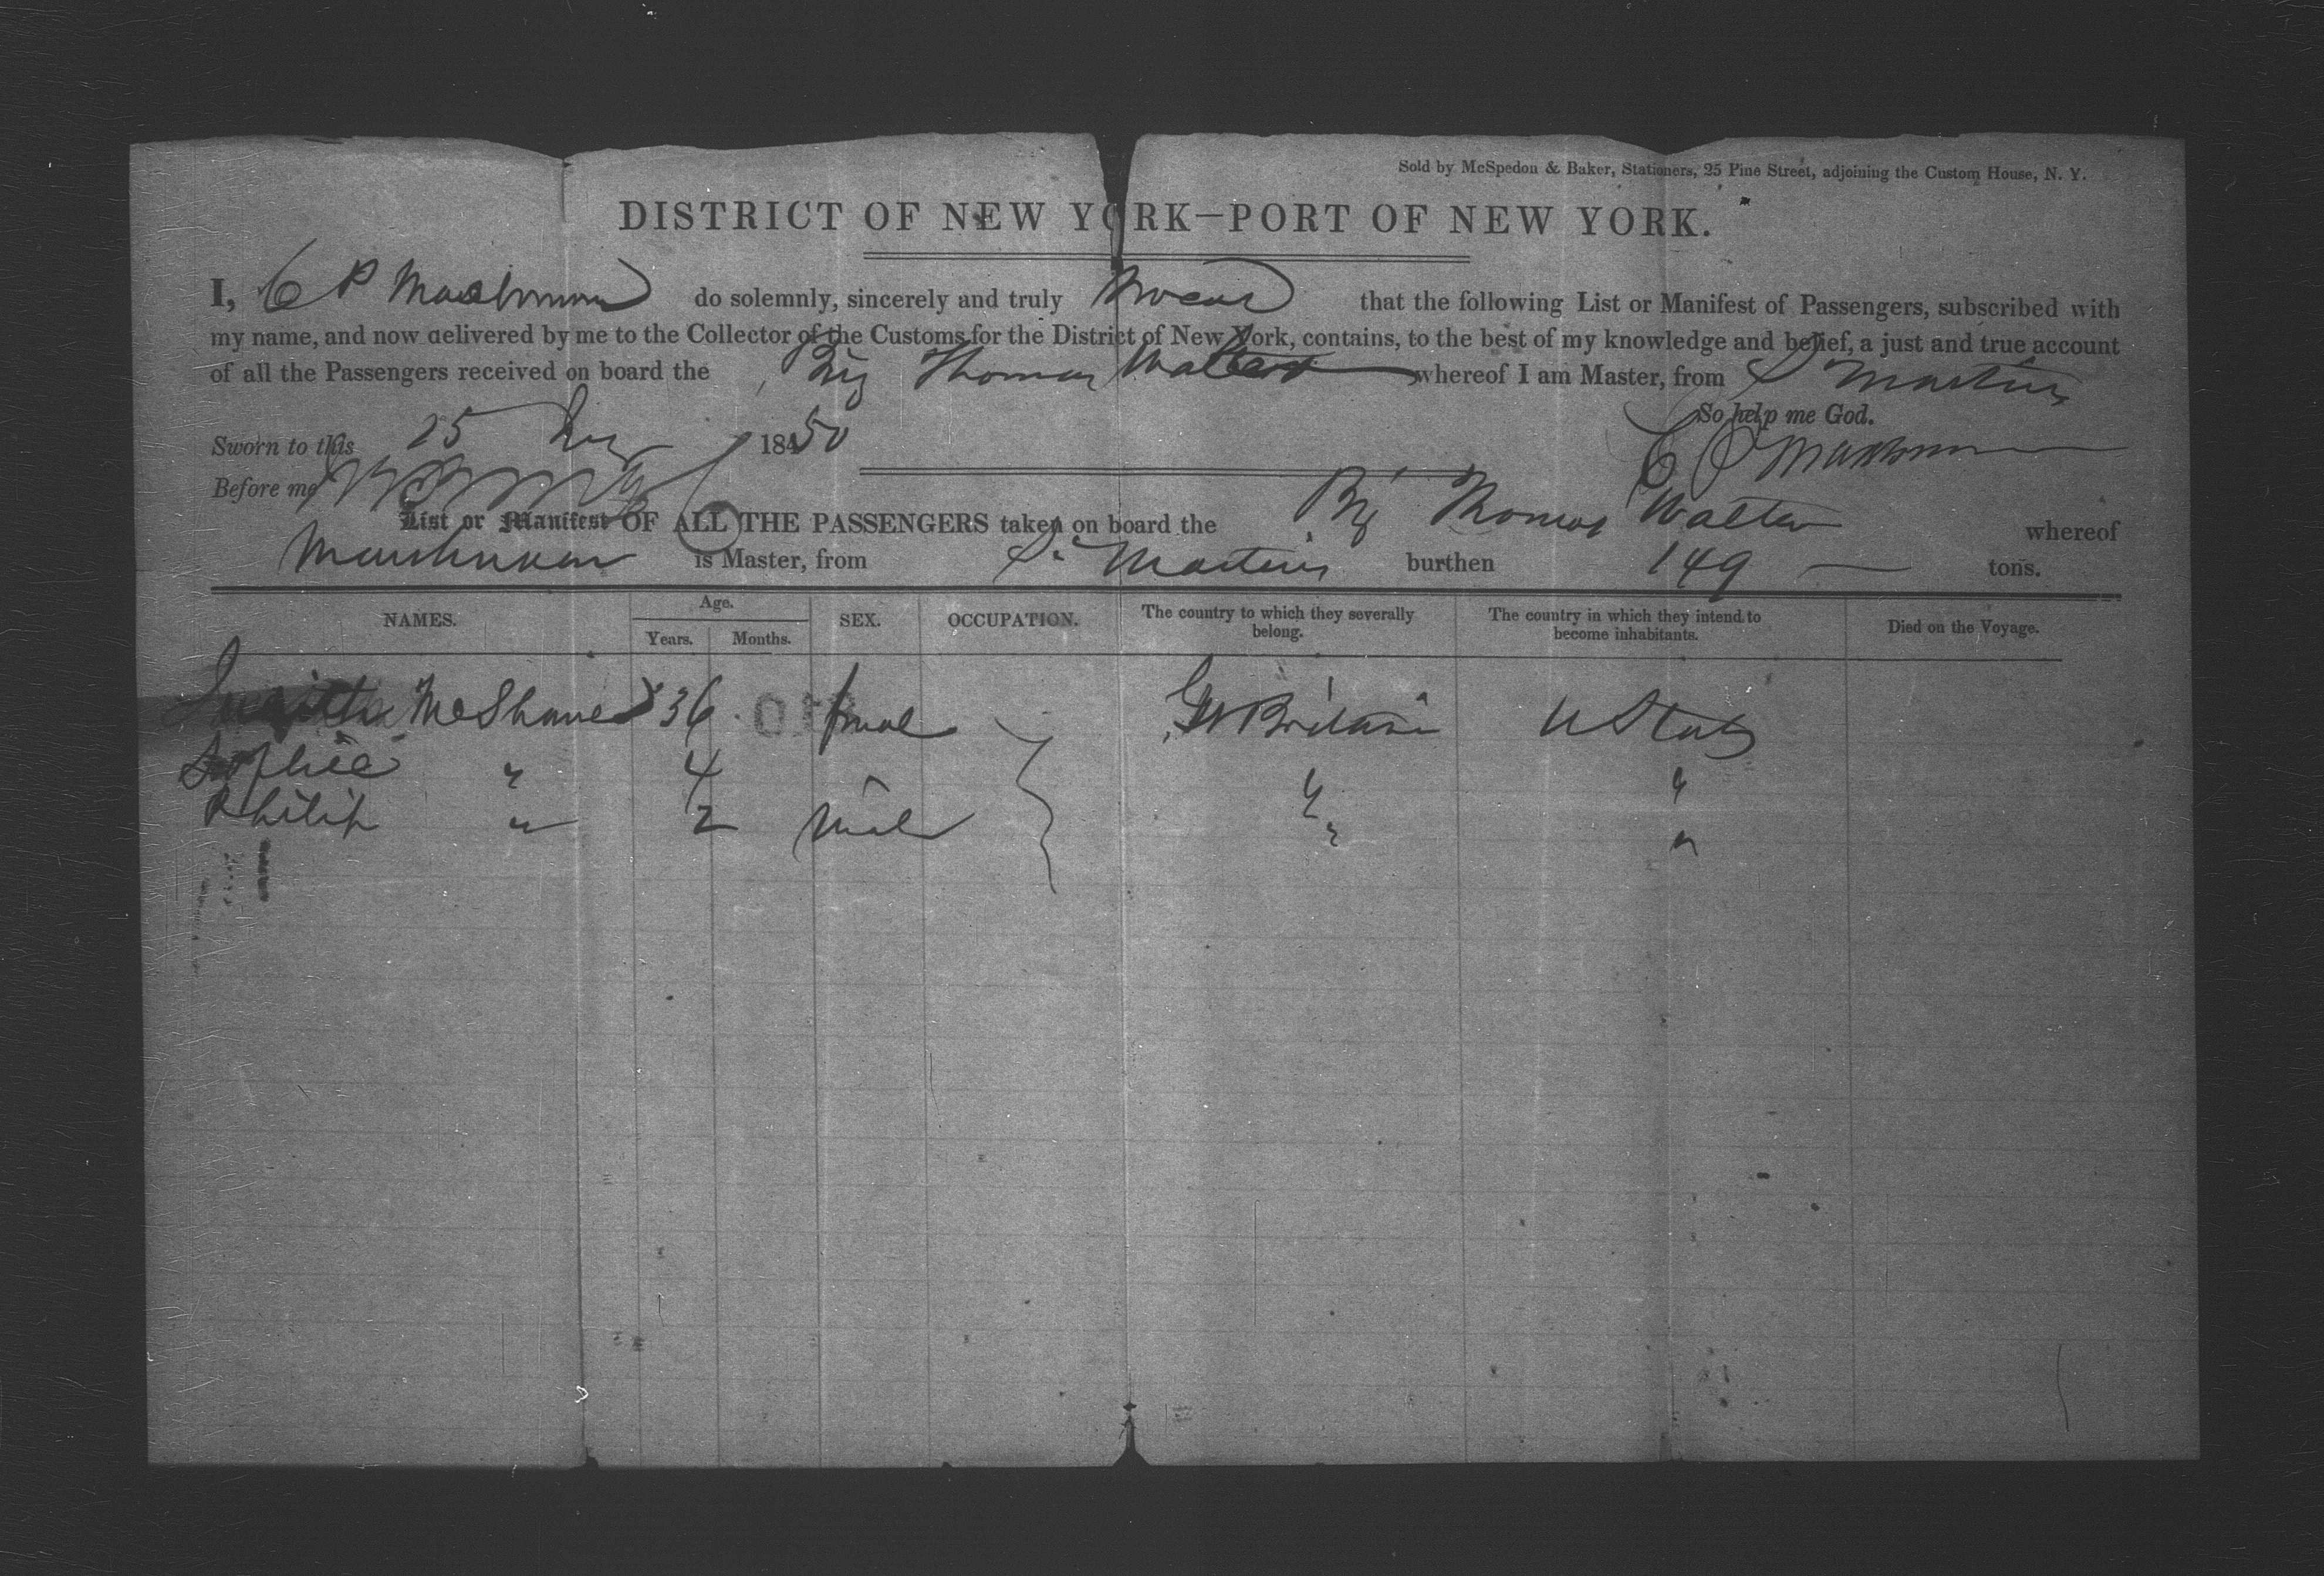 Sold by McSpedon & Baker, Stationers, 25 Pine Street, adjoining the Custom House, N. Y.
DISTRICT OF NEW YORK—PORT OF NEW YORK.
I, C P do solemnly, sincerely and truly Swear that the following List or Manifest of Passengers, subscribed with
my name, and now delivered by me to the Collector of the Customs for the District of New York, contains, to the best of my knowledge and belief, a just and true account
of all the Passengers received on board the Brig Thomas Walter whereof I am Master, from St Martins
So help me God.
Sworn to this 25 1850
C P
Before me
List or Manifest OF ALL THE PASSENGERS taken on board the Brig Thomas Walter whereof
is Master, from St Martins burthen 149 tons.
NAMES. Age. Years. Months. SEX. OCCUPATION. The country to which they severally belong. The country in which they intend to become inhabitants. Died on the Voyage.
McShane 36 femal Gt Britain U States
Sophie " 4 " "
Philip " 2 Male " "